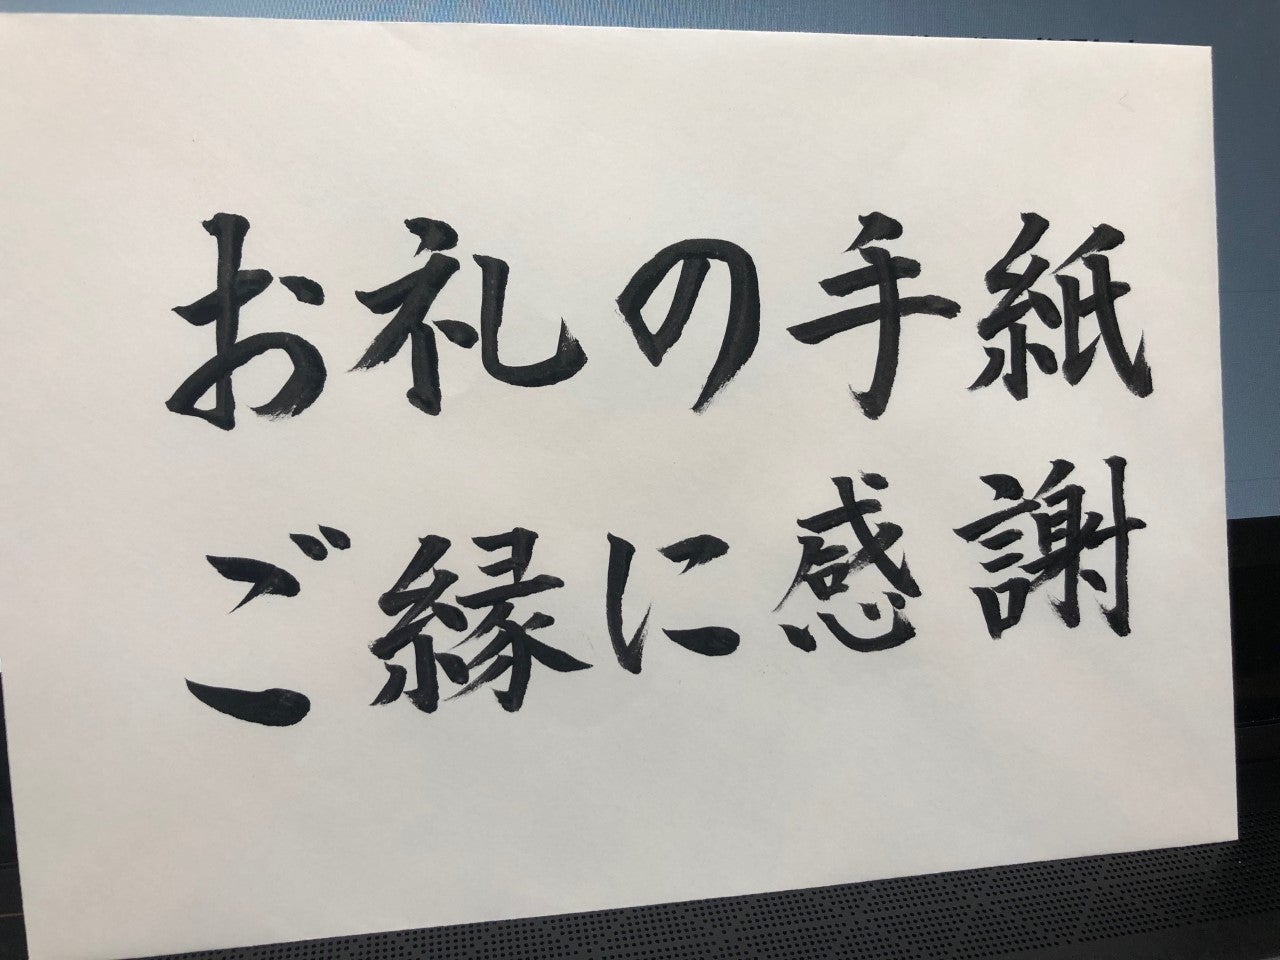 お礼の手紙
ご縁に感謝